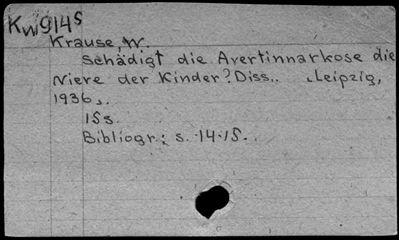 Kw914s
Krause, W.
Schädigt die Avertinnarkose die
Niere der Kinder? Diss.. Leipzig,
1936..
15s.
Bibliogr.: s. 14-15.